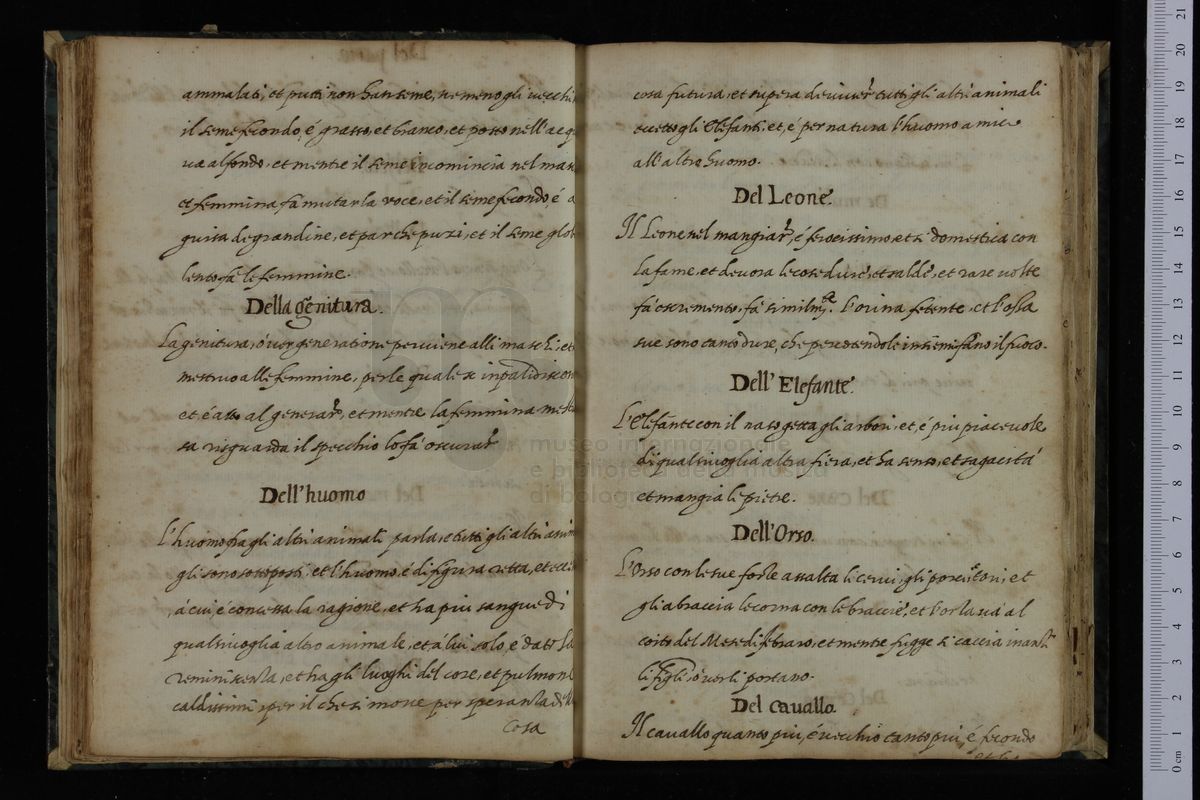 ammalati, et putti non han seme, ne meno gli vecchi
il seme fecondo, é grasso, et bianco, et posto nell'acq
va al fondo, et mentre il seme incomincia nel mas
et femmina, fa mutar la voce, et il seme fecondo, é a
guisa de grandine, et par che puzi, et il seme glo
lento fa le femmine.
Della genitura.
La genitura, ó ver generatione perviene alli maschi, et
mestruo alle femmine, per le quale se
et, é atto al generar, et mentre la femmina mest
sa risguarda il specchio lo fa oscurar
Dell'huomo
L'huomo fra gli altri animali parla, et tutti gli altri anim
gli sono sottoposti, et l'huomo, é di figura retta, et
, á cui, é concessa la ragione, et ha piu sangue di
qualsivoglia altro animale, et á lui solo, e dato la
reminisenza, et ha gli luoghi del core, et pulmoni
caldissimi, per il che si move per speranza di
Cosa
cosa futura, et supera de viver tutti gli altri animali
eccetto gli Elefanti, et, é per natura l'huomo amico
all'altro huomo.
Del Leone.
Il Leone nel mangiar, é ferocissimo, et si domestica con
la fame, et devora le cose dure, et salde, et rare volte
fa escremento, fa similmte. l'orina fetente, et l'ossa
sue sono tanto dure, che percotendole insieme fano il fuoco.
Dell'Elefante.
L'Elefante con il naso getta gli arbori, et, é piu piacevole
di qualsivoglia altra fiera, et ha senso, et sagacitá
et mangia le pietre.
Dell'Orso.
L'Orso con le sue forze assalta li cervi, gli porci, tori, et
gli abraccia le corna con le braccie, et l'orsa va al
coito del Mese di febraro, et mentre fugge si caccia inanti
li figli, ó ver li portano.
Del Cavallo.
Il cavallo quanto piu, é vecchio tanto piu, é fecondo
museo internazionale
e biblioteca della musica
di bologna
0 cm 1 2 3 4 5 6 7 8 9 10 11 12 13 14 15 16 17 18 19 20 21